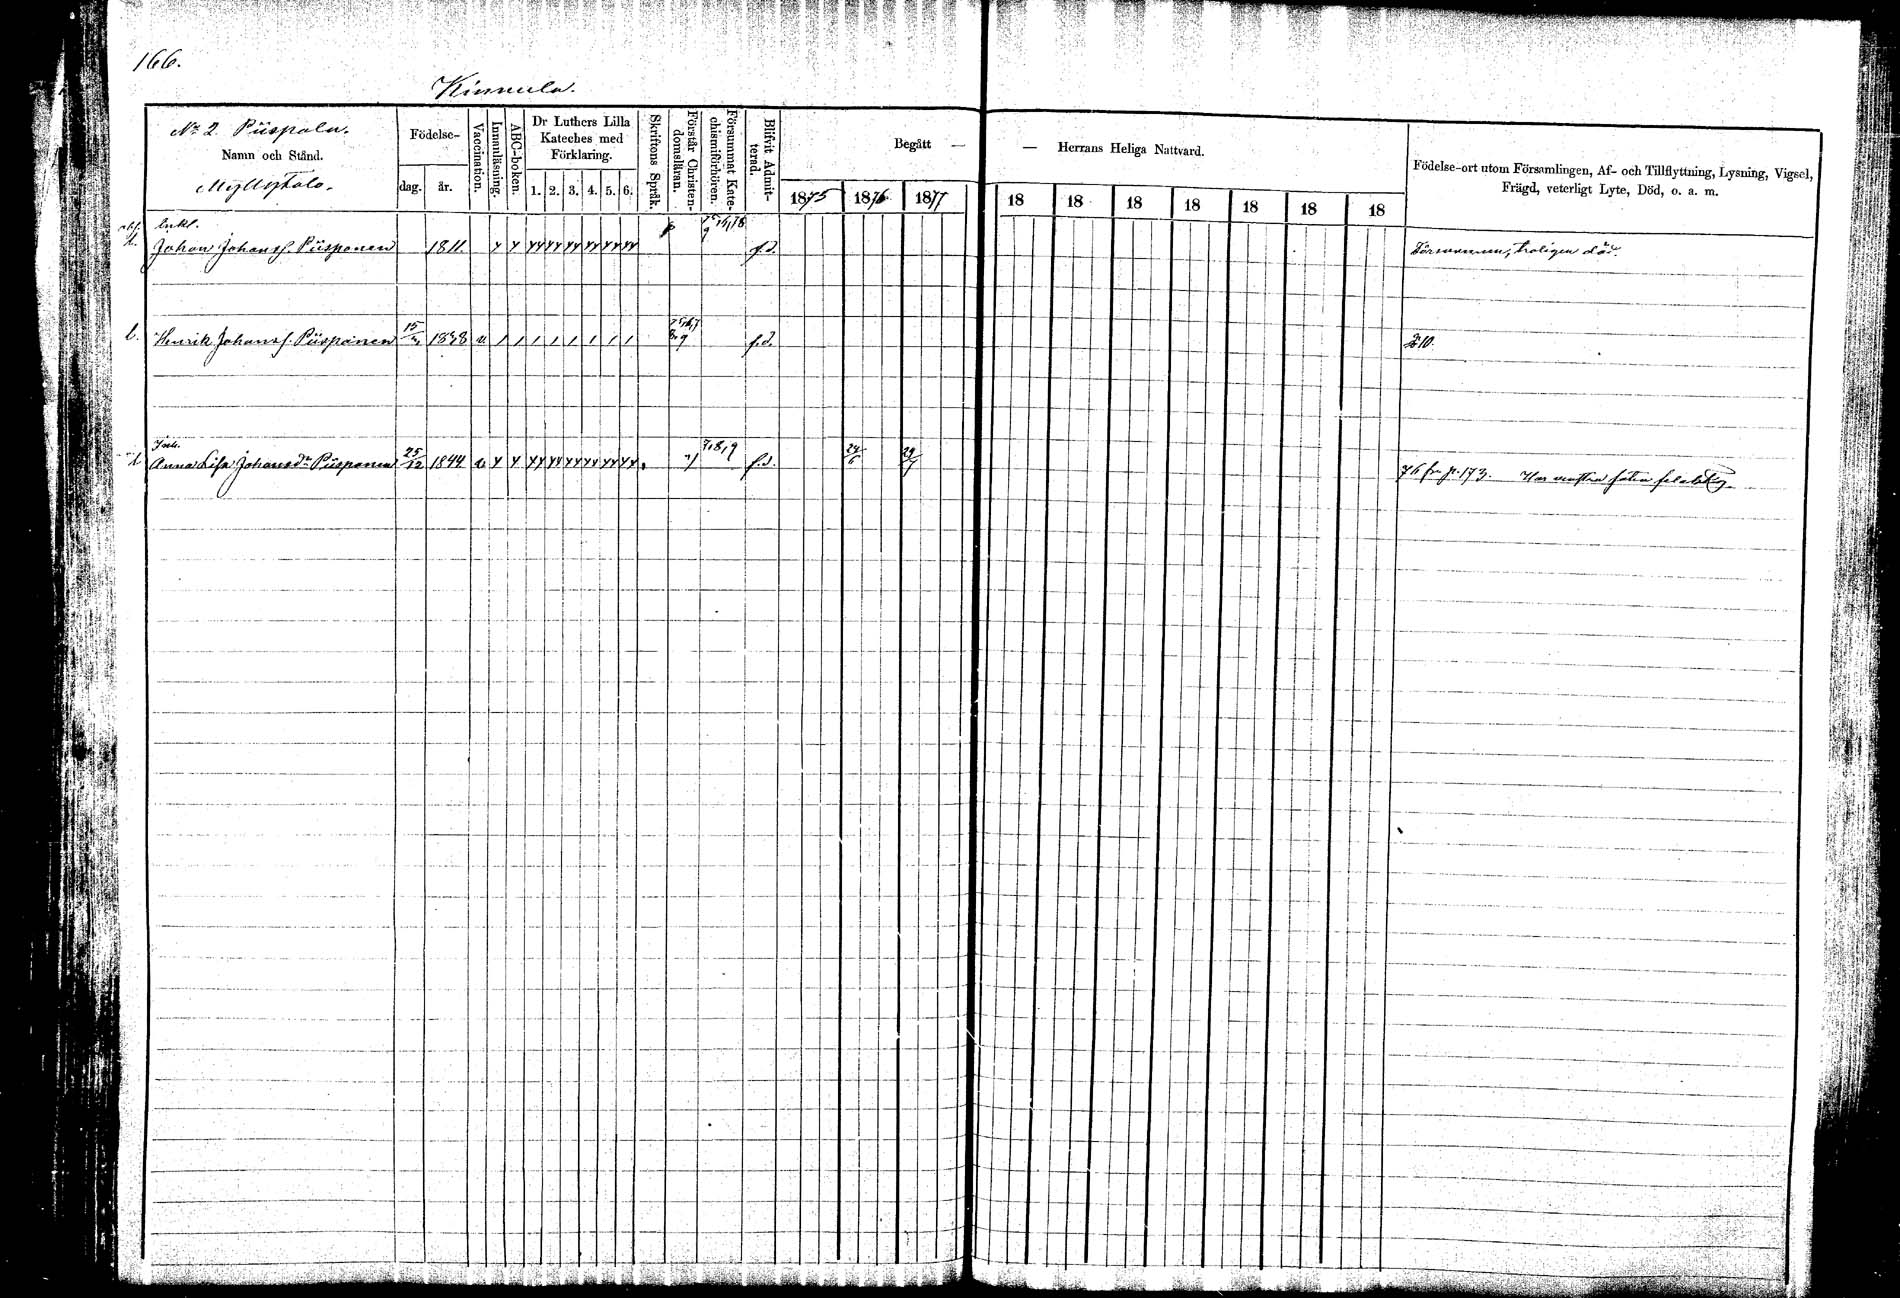 166.
Kinnula.
No 2 Piispala.
Namn och Stånd.
Myllytalo.
Födelse-
dag. år.
Vaccination.
Innanläsning.
ABC-boken.
Dr Luthers Lilla
Kateches med
Förklaring.
1. 2. 3. 4. 5. 6.
Skriftens Språk.
Förstår Christen-
domsläran.
Försummat Kate-
chismiförhören.
Blifvit Admit-
terad.
Begått — — Herrans Heliga Nattvard.
1875 1876 1877 18 18 18 18 18 18 18
Födelse-ort utom Församlingen, Af- och Tillflyttning, Lysning, Vigsel,
Frägd, veterligt Lyte, Död, o. a. m.
Enkl.
Johan Johanss. Piisponen 1811. f.d. Försvunnen, troligen död.
b. Henrik Johanss. Piisponen 15 1838 v f.d. 210.
Anna Lisa Johansdr Piisponen 25/12 1844 v 7,8,9 f.d. 24/6 29 76 fr. p. 173. Har venstra foten felaktig.